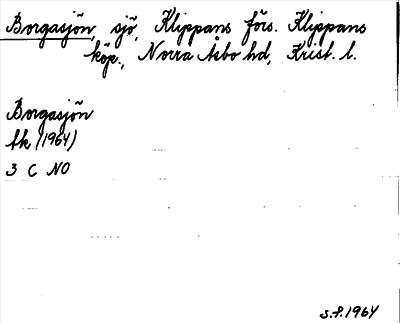 Borgasjön, sjö, Klippans förs. Klippans
köp., Norra Åsbo hd, Krist. l.
Borgasjön
fk (1964)
3 C NO
s.f. 1964